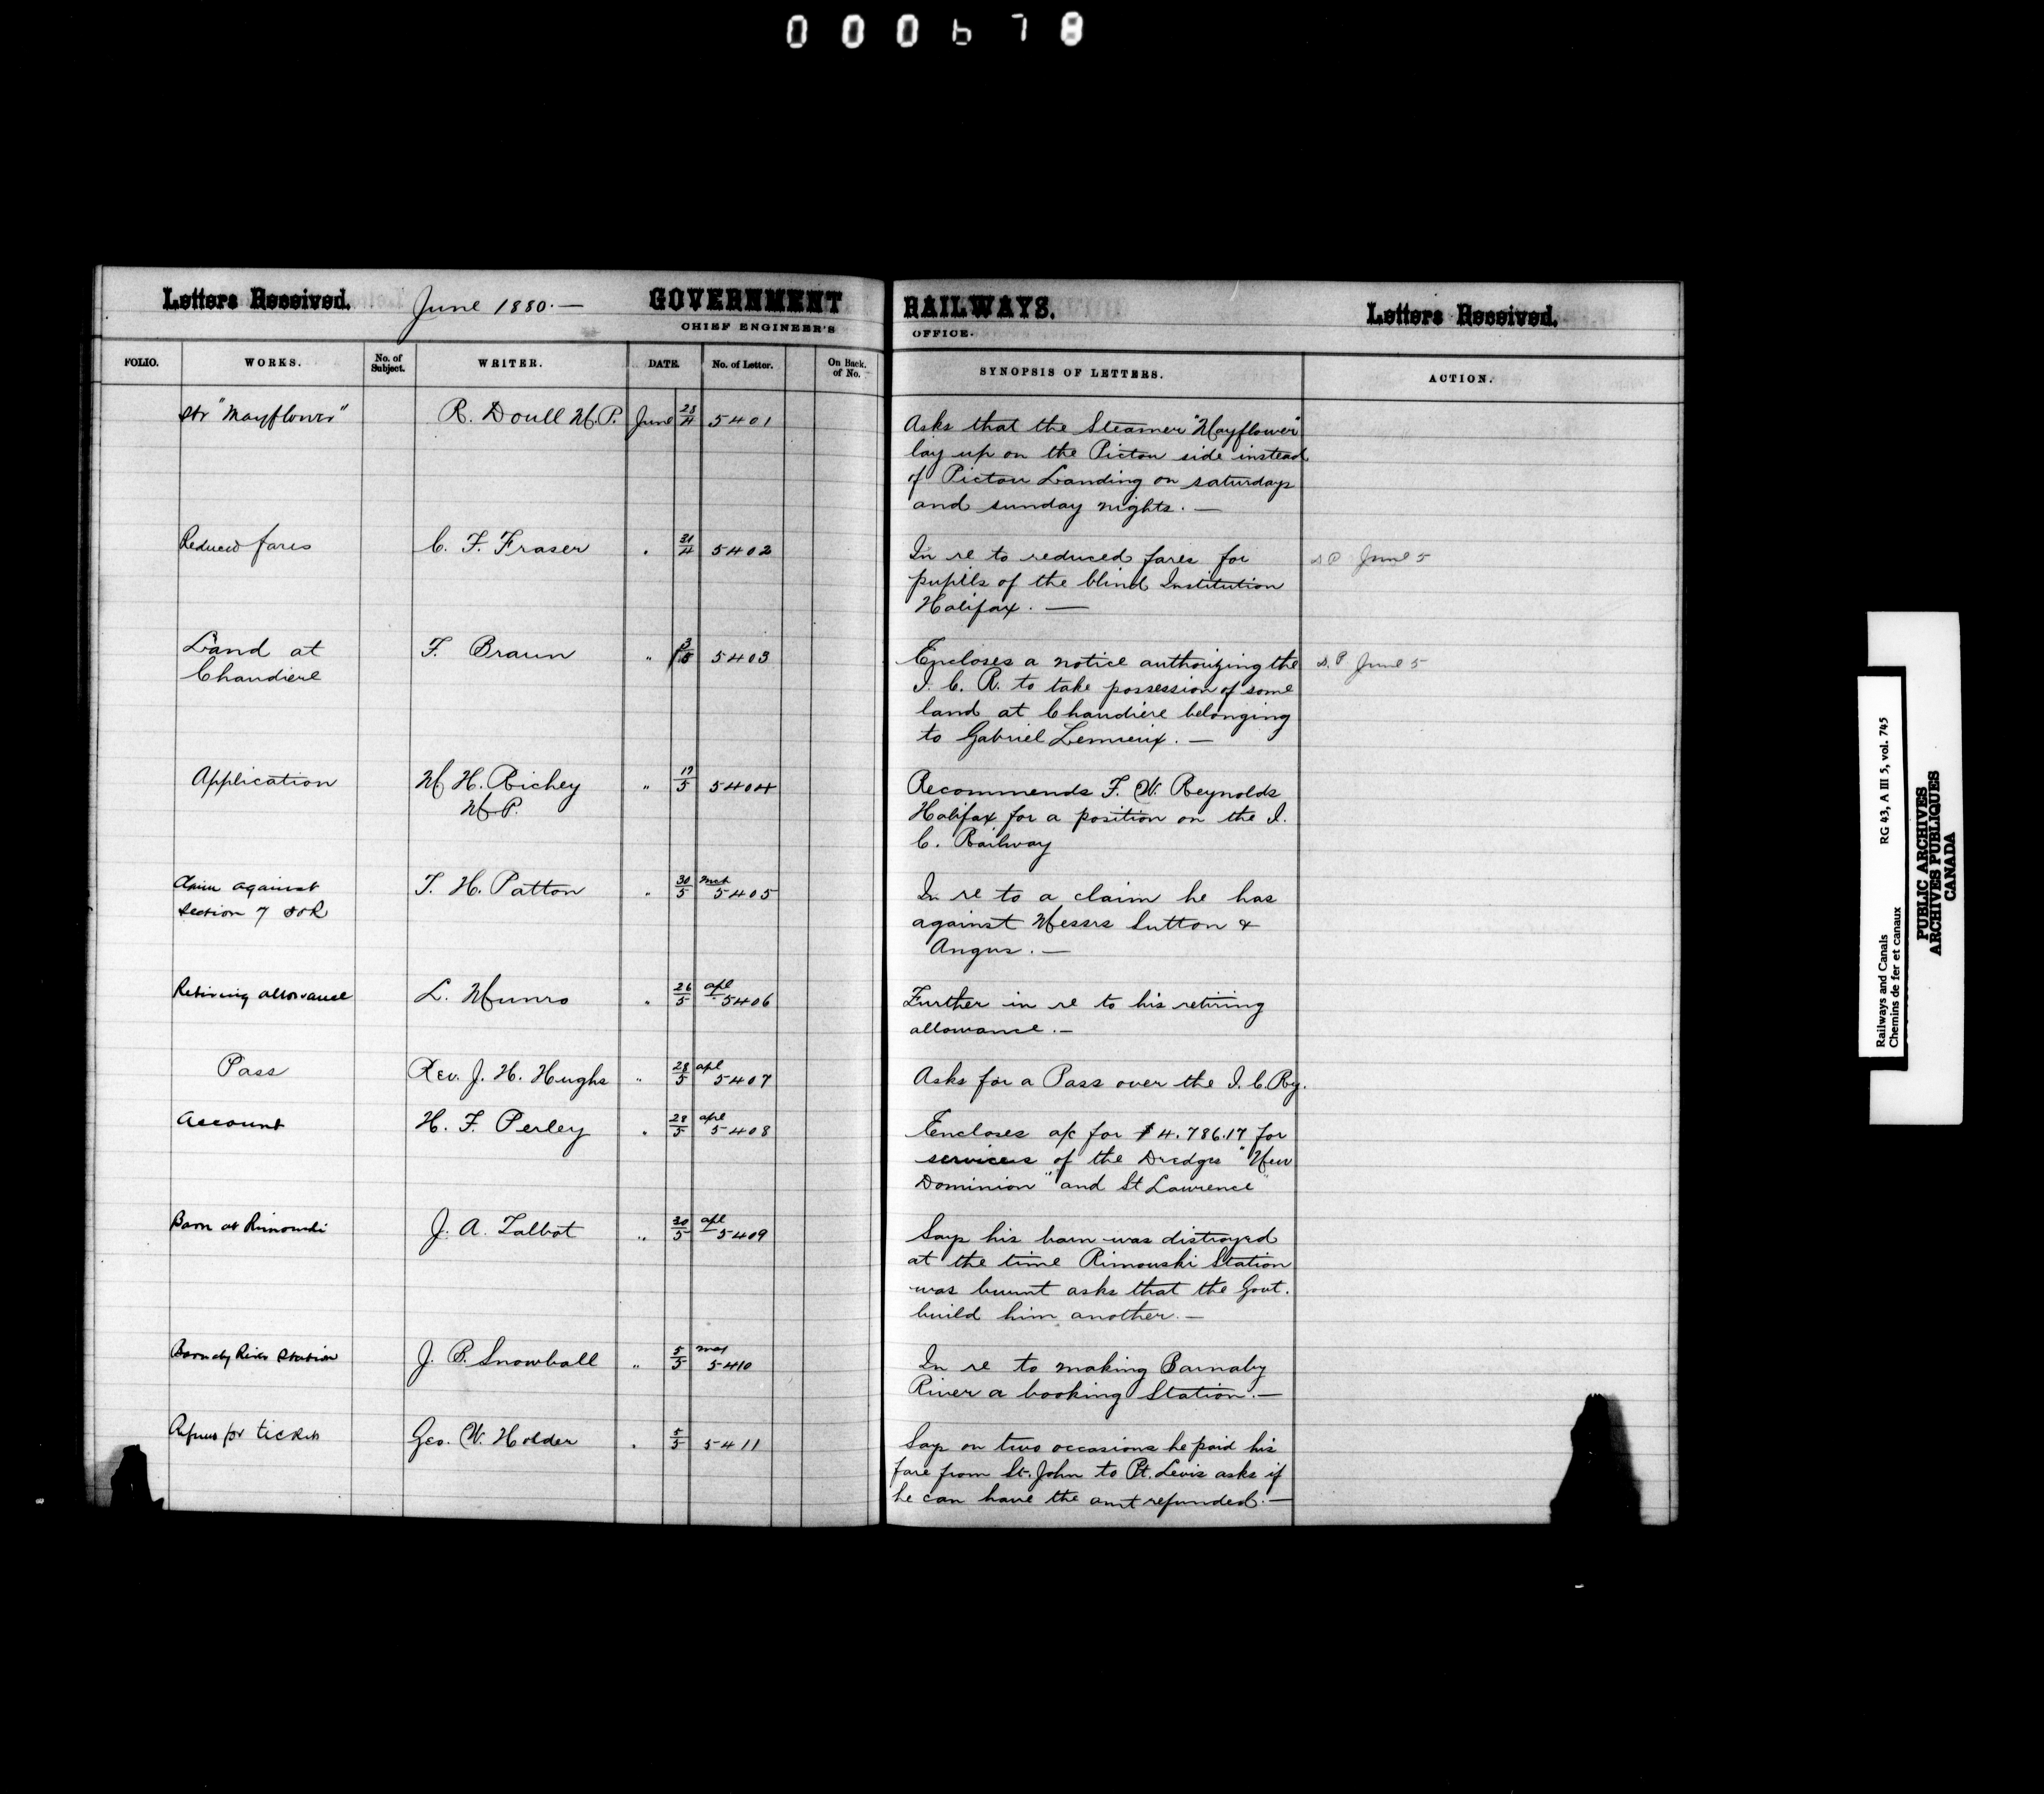 000678
Letters Received. June 1880.— GOVERNMENT RAILWAYS. Letters Received.
CHIEF ENGINEER'S OFFICE.
FOLIO. WORKS. No. of Subject. WRITER. DATE. No. of Letter. On Back of No. SYNOPSIS OF LETTERS. ACTION.
Str "Mayflower" R. Doull M.P. June 28/4 5401 Asks that the Steamer "Mayflower"
lay up on the Pictou side instead
of Pictou Landing on saturdays
and sunday nights. —
Reduced fares C. F. Fraser " 21/4 5402 In re to reduced fares for
pupils of the blind Institution
Halifax. —
June 5
Land at
Chaudiere
F. Braun " 3/5 5403 Encloses a notice authorizing the
I. C. R. to take possession of some
land at Chaudière belonging
to Gabriel Lemieux. —
June 5
Application M. H. Richey
M.P.
" 17/5 5404 Recommends F. W. Reynolds
Halifax for a position on the I.
C. Railway
Claim against
Section 7
T. H. Patton " 30/5 mch 5405 In re to a claim he has
against Messrs Sutton &
Angus. —
Retiring allowance L. Munro " 26/5 apl 5406 Further in re to his retiring
allowance. —
Pass Rev. J. H. Hughs " 28/5 apl 5407 Asks for a Pass over the I. C. Ry.
Account H. F. Perley " 28/5 apl 5408 Encloses a/c for $4.786.17 for
services of the Dredges "New
Dominion" and St Lawrence"
Barn at Rimouski J. A. Talbot " 30/5 apl 5409 Says his barn was distroyed
at the time Rimouski Station
was burnt asks that the Govt.
build him another. —
Barnaby River Station J. B. Snowball " 5/5 may 5410 In re to making Barnaby
River a booking Station. —
for tickets Geo. W. Holder " 5/5 5411 Says on two occasions he paid his
fare from St. John to Pt. Levis asks if
he can have the amt refunded. —
Railways and Canals RG 43, A III 5, vol. 745
Chemins de fer et canaux
PUBLIC ARCHIVES
ARCHIVES PUBLIQUES
CANADA